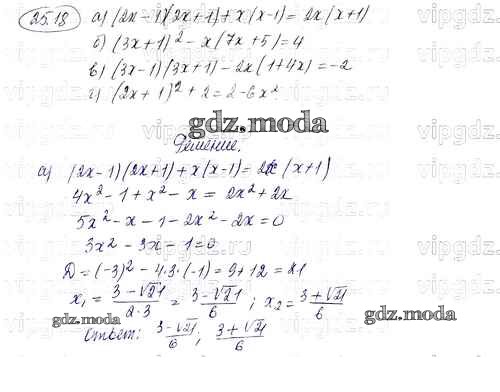 25.18 а) (2x-1)(2x+1)+x(x-1)=2x(x+1)
б) (3x+1)² - x(7x+5)=4
в) (3x-1)(3x+1)-2x(1+4x)=-2
г) (2x+1)²+2=2-6x²
gdz.moda
Решение.
а) (2x-1)(2x+1)+x(x-1)=2x(x+1)
4x²-1+x²-x=2x²+2x
5x²-x-1-2x²-2x=0
3x²-3x-1=0
D=(-3)²-4·3·(-1)=9+12=21
x₁=(3-√21)/(2·3)=(3-√21)/6; x₂=(3+√21)/6
gdz.moda gdz.moda
Ответ: (3-√21)/6; (3+√21)/6